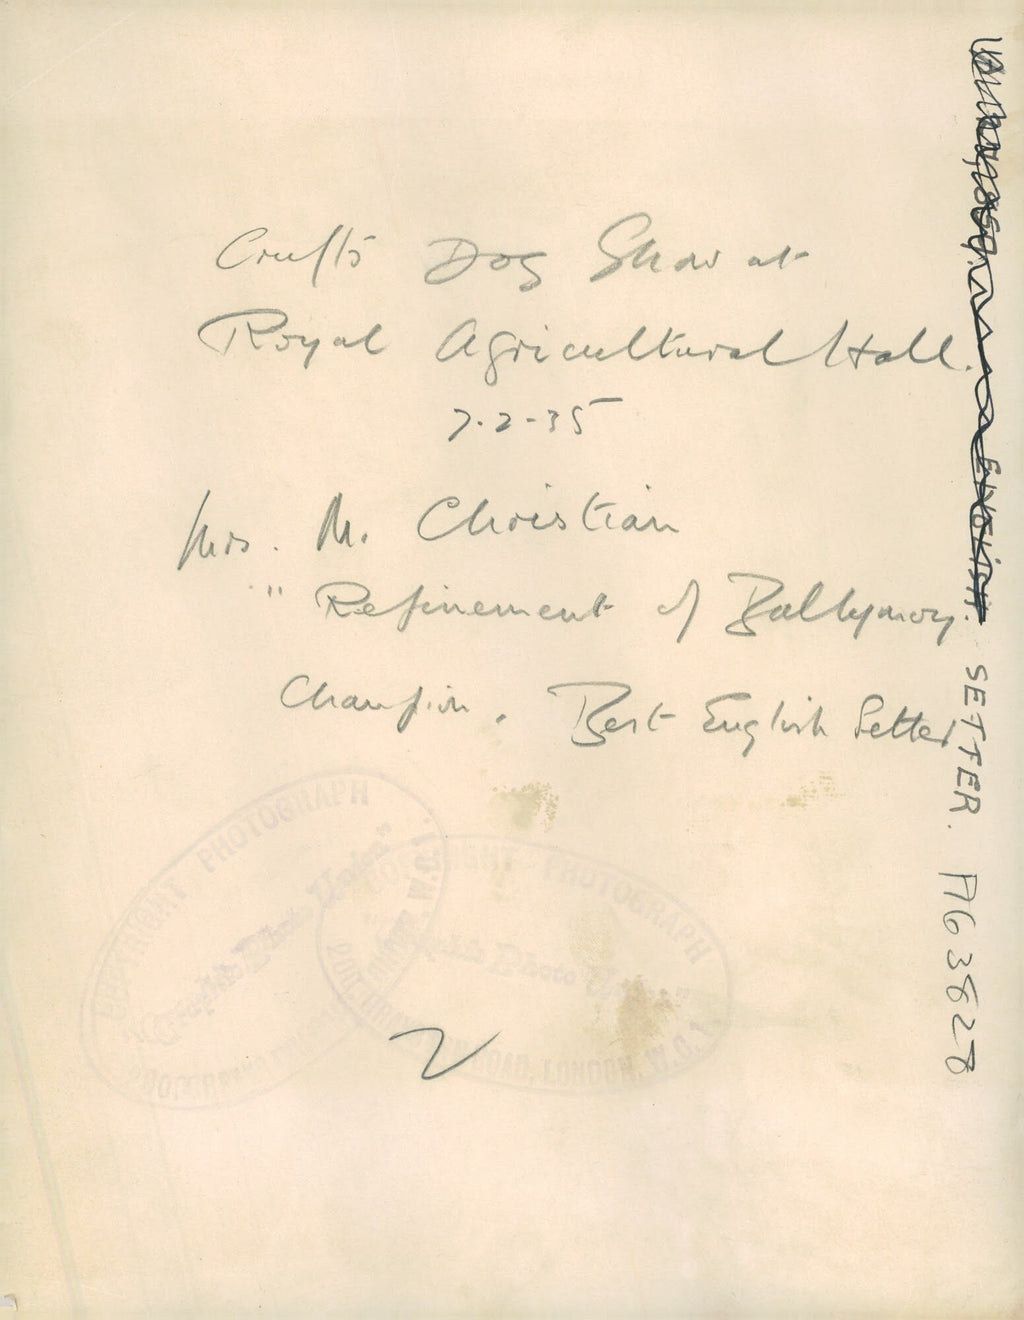 Crufts Dog Show at
Royal Agricultural Hall.
7.2-35
Mrs. M. Christian
"Refinement of Ballymoy.
Champion. Best English Setter
ENGLISH SETTER. A63828
COPYRIGHT PHOTOGRAPH
"Graphic Photo Union"
COPYRIGHT PHOTOGRAPH
"Graphic Photo Union"
200, GRAY'S INN ROAD, LONDON, W.C.1